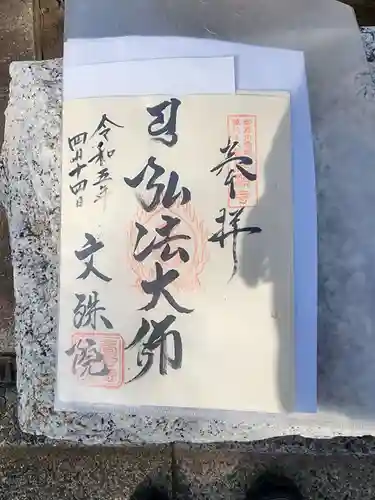 奉拝
弘法大師
文殊院
令和五年
四月十四日